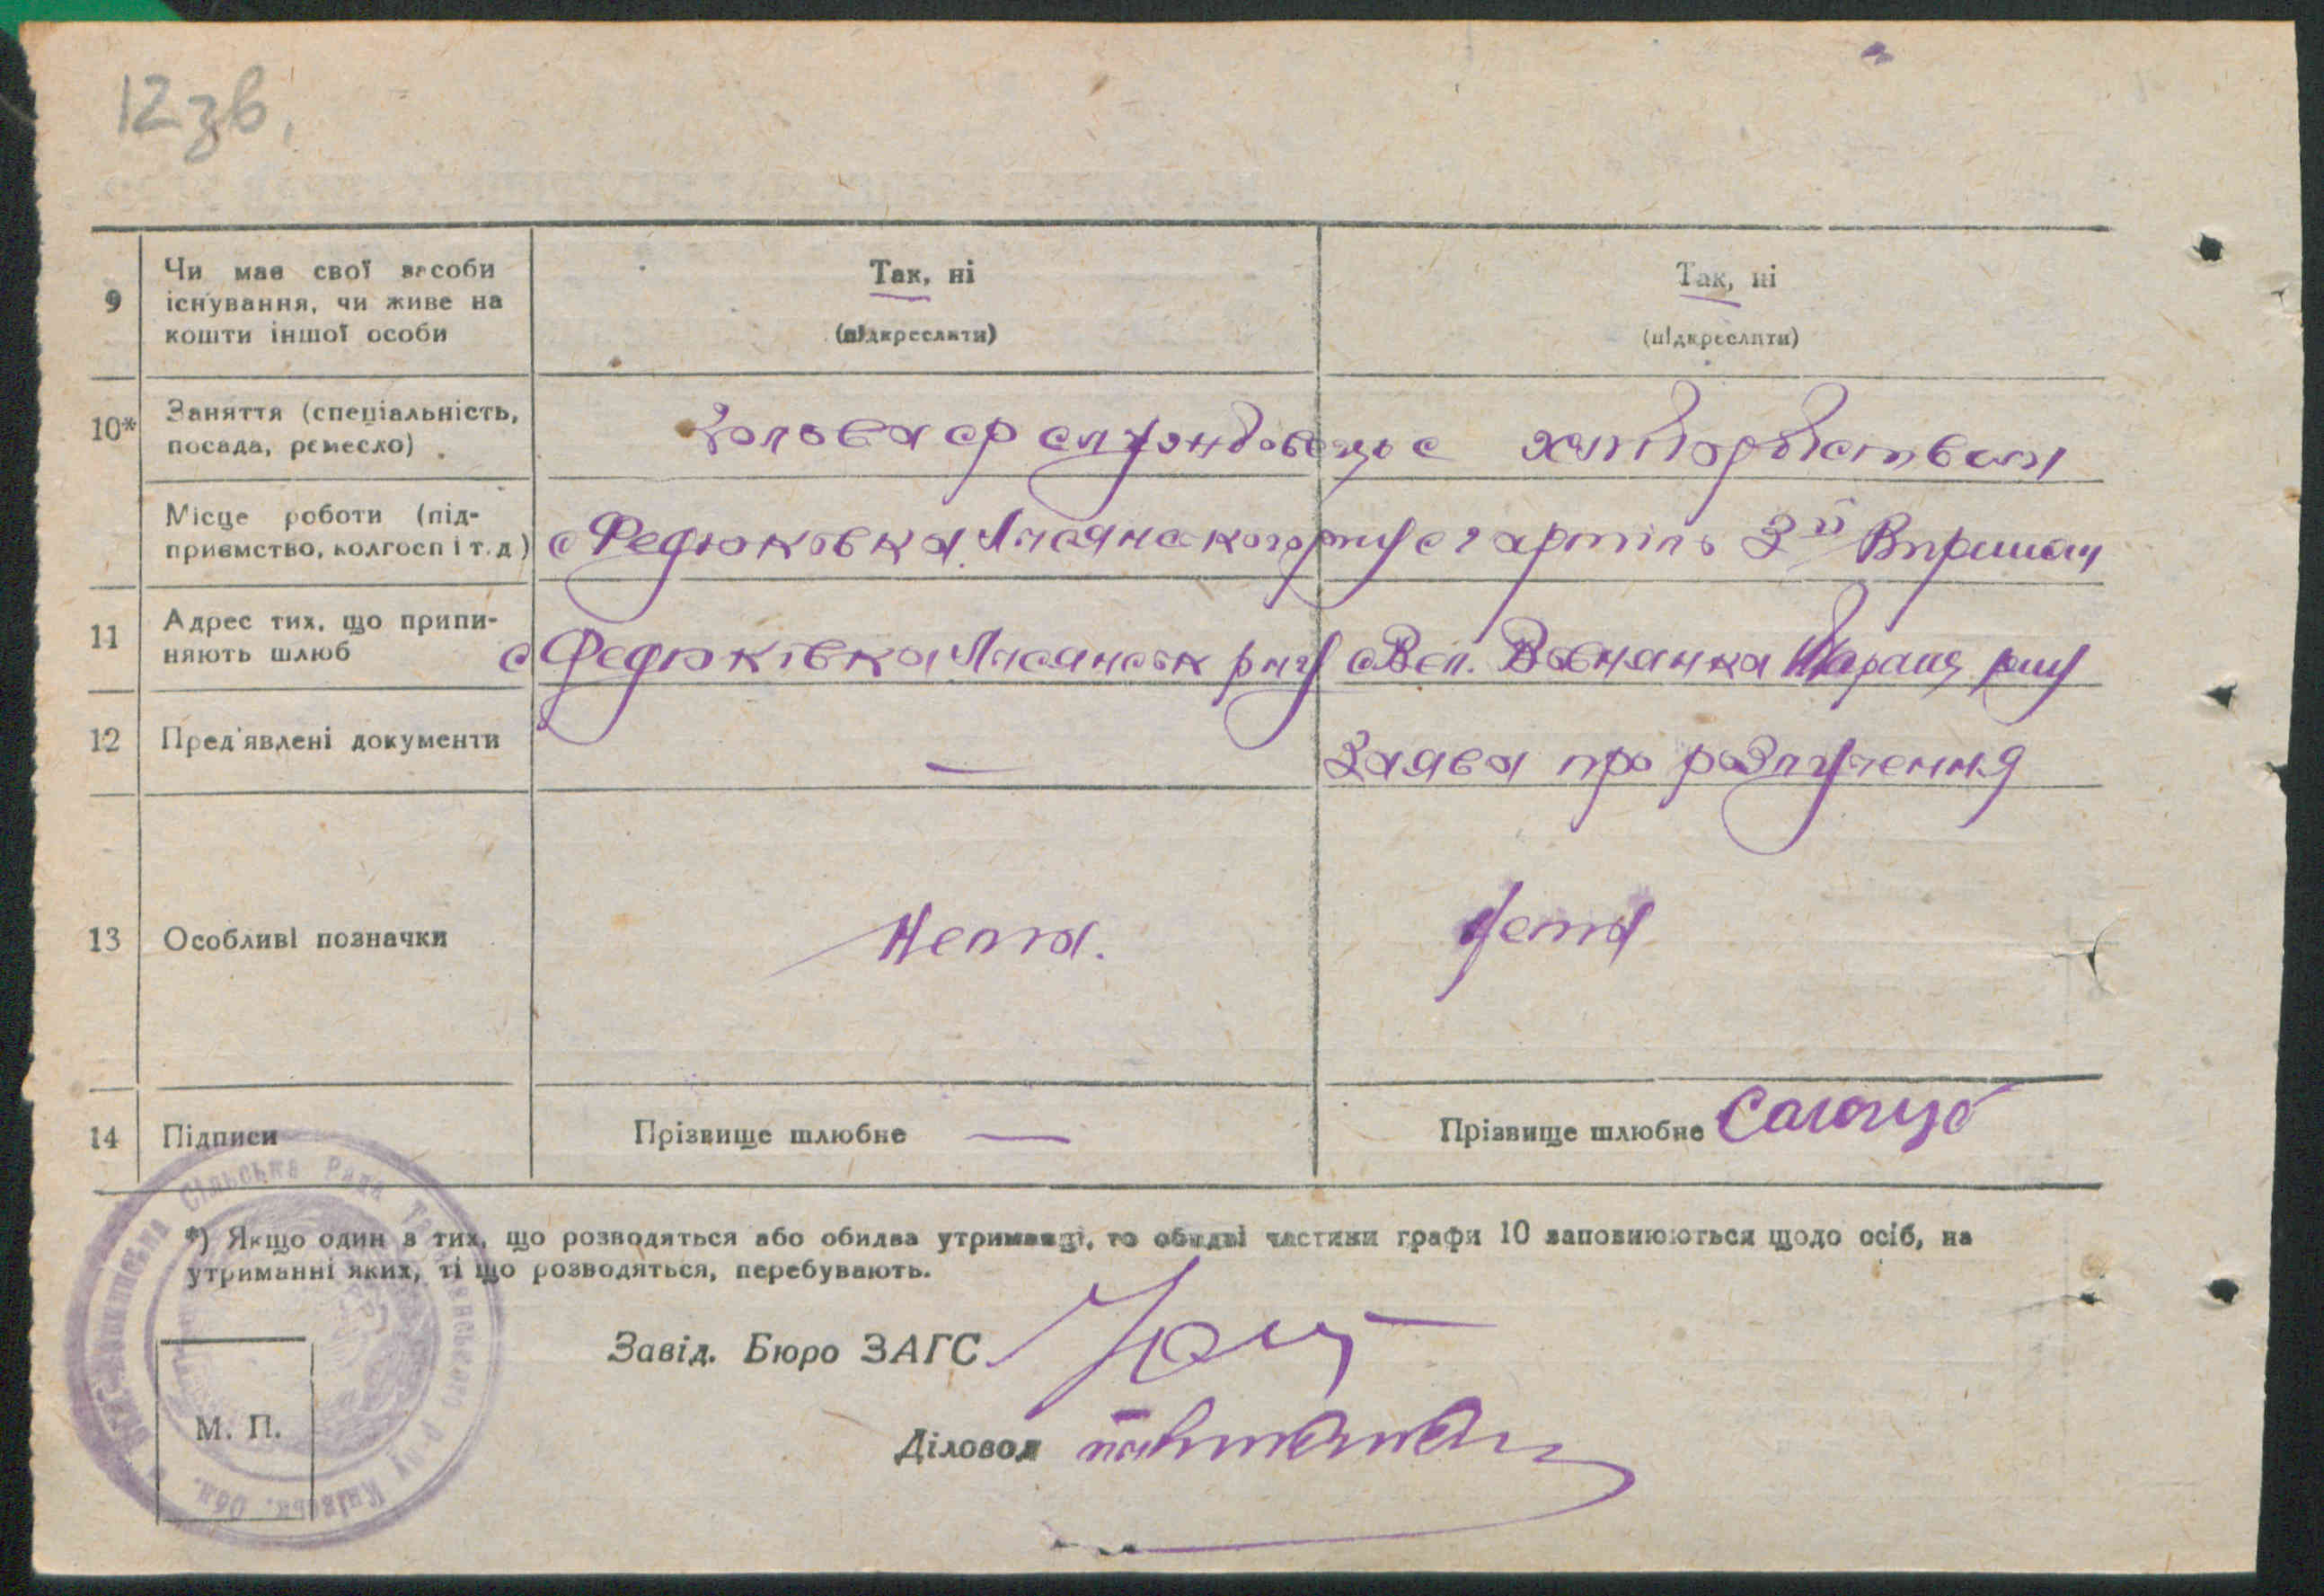 12 зв.
9
Чи має свої засоби
існування, чи живе на
кошти іншої особи
Так, ні
(підкреслити)
Так, ні
(підкреслити)
10*
Заняття (спеціальність,
посада, ремесло)
хліборобством
Місце роботи (під-
приємство, колгосп і т. д)
с Федюковка Лисянського р-ну
с г артіль
11
Адрес тих, що припи-
няють шлюб
с Федюківка Лисянськ р-ну
с Вел. Вовнянка Таращ р-ну
12
Пред'явлені документи
—
Заява про розлучення
13
Особливі позначки
Нема.
Нема
14
Підписи
Прізвище шлюбне —
Прізвище шлюбне
Сільська Рада
Київськ. Обл.
*) Якщо один з тих, що розводяться або обидва утриманці, то обидві частини графи 10 заповнюються щодо осіб, на
утриманні яких, ті що розводяться, перебувають.
Завід. Бюро ЗАГС
Діловод
М. П.